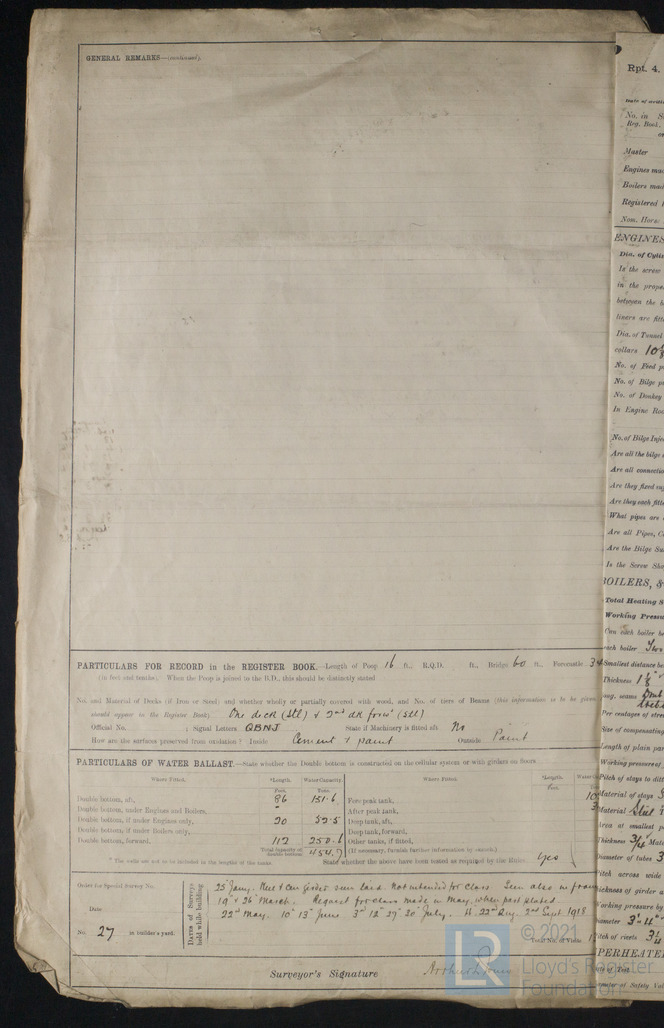 GENERAL REMARKS—(continued).
PARTICULARS FOR RECORD in the REGISTER BOOK.—Length of Poop 16 ft., R.Q.D. ft., Bridge 60 ft., Forecastle 3
(in feet and tenths). When the Poop is joined to the B.D., this should be distinctly stated
No. and Material of Decks (if Iron or Steel) and whether wholly or partially covered with wood, and No. of tiers of Beams (this information is to be given
should appear in the Register Book). One deck (Stl) & 2nd dk (Stl)
Official No. ; Signal Letters QBNJ State if Machinery is fitted aft No
How are the surfaces preserved from oxidation? Inside Cement & paint Outside Paint
PARTICULARS OF WATER BALLAST.—State whether the Double bottom is constructed on the cellular system or with girders on floors
Where Fitted. *Length. Water Capacity. Where Fitted. *Length. Water
Feet. Tons. Feet.
Double bottom, aft, 86 151.6 Fore peak tank, 10
Double bottom, under Engines and Boilers, After peak tank,
Double bottom, if under Engines only, 20 52.5 Deep tank, aft,
Double bottom, if under Boilers only, Deep tank, forward,
Double bottom, forward, 112 250.6 Other tanks, if fitted,
Total capacity of double bottom 454.7 (If necessary, furnish further information by sketch).
* The wells are not to be included in the lengths of the tanks. State whether the above have been tested as required by the Rules Yes
Order for Special Survey No.
Date
No. 27 in builder's yard.
Dates of Surveys held while building
25 Jany. Keel & Cen girder seen laid. Not intended for class Seen also in fram
19 & 26 March. Request for class made in May, when part plated
22nd May. 10 13 June 3 12 27 30 July. 22nd Aug. 2nd Sept 1918
Total No. of Visits
Surveyor's Signature
© 2021
LR
Lloyd's Register
Foundation
Rpt. 4.
No. in
Reg. Book.
Master
Engines mad
Boilers mad
Registered
Nom. Hors
ENGINES
Dia. of Cylin
Is the screw
in the prope
between the b
liners are fitt
Dia. of Tunnel
collars 10
No. of Feed p
No. of Bilge p
No. of Donkey
In Engine Roo
No. of Bilge Injec
Are all the bilge
Are all connectio
Are they fixed
Are they each fitt
What pipes are
Are all Pipes, C
Are the Bilge Su
Is the Screw Sha
BOILERS, &
Total Heating S
Working Pressu
Can each boiler be
each boiler Two
Smallest distance be
Thickness 1
long. seams
Per centages of stre
Size of compensating
Length of plain par
Working pressure of
Pitch of stays to
Material of stays
Material Steel
Area at smallest p
Thickness Mate
Diameter of tubes 3
Pitch across wide
Thickness of girder a
Working pressure by
Diameter 3'-11"
Pitch of rivets
SUPERHEATER
Date of Test
Diameter of Safety Val